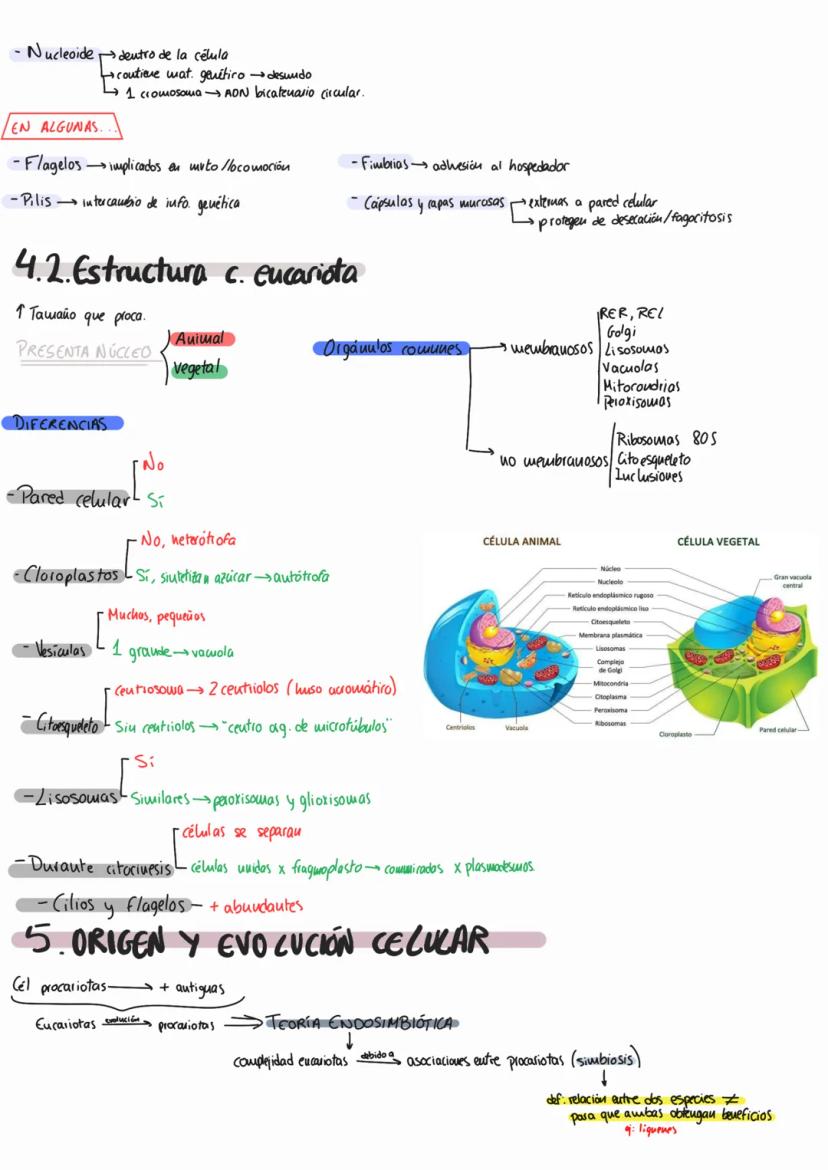 - Nucleoide → dentro de la célula
→ contiene mat. genético → desnudo
→ 1 cromosoma → ADN bicatenario circular.
EN ALGUNAS...
- Flagelos → implicados en mvto/locomoción
- Fimbrias → adhesión al hospedador
- Pilis → intercambio de info. genética
- Cápsulas y capas mucosas → externas a pared celular
→ protegen de desecación/fagocitosis
4.2. Estructura c. eucariota
↑ Tamaño que proca.
PRESENTA NÚCLEO
Animal
Vegetal
Orgánulos comunes
→ membranosos
RER, REL
Golgi
Lisosomas
Vacuolas
Mitocondrias
Peroxisomas
→ no membranosos
Ribosomas 80S
Citoesqueleto
Inclusiones
DIFERENCIAS
No
- Pared celular
Sí
No, heterótrofa
- Cloroplastos
Sí, sintetizan azúcar → autótrofa
Muchos, pequeños
- Vesículas
1 grande → vacuola
centrosoma → 2 centriolos (huso acromático)
- Citoesqueleto
Sin centriolos → "centro org. de microtúbulos"
Sí
- Lisosomas
Similares → peroxisomas y glioxisomas
células se separan
- Durante citocinesis
células unidas x fragmoplasto → comunicadas x plasmodesmos.
- Cilios y flagelos - + abundantes
CÉLULA ANIMAL
CÉLULA VEGETAL
Núcleo
Nucleolo
Retículo endoplásmico rugoso
Retículo endoplásmico liso
Citoesqueleto
Membrana plasmática
Lisosomas
Complejo
de Golgi
Mitocondria
Citoplasma
Peroxisoma
Ribosomas
Gran vacuola
central
Centriolos
Vacuola
Cloroplasto
Pared celular
5. ORIGEN Y EVOLUCIÓN CELULAR
Cél procariotas → + antiguas
Eucariotas evolución → procariotas ⇒ TEORÍA ENDOSIMBIÓTICA
complejidad eucariotas debido a → asociaciones entre procariotas (simbiosis)
def. relación entre dos especies ≠
para que ambas obtengan beneficios
ej: líquenes